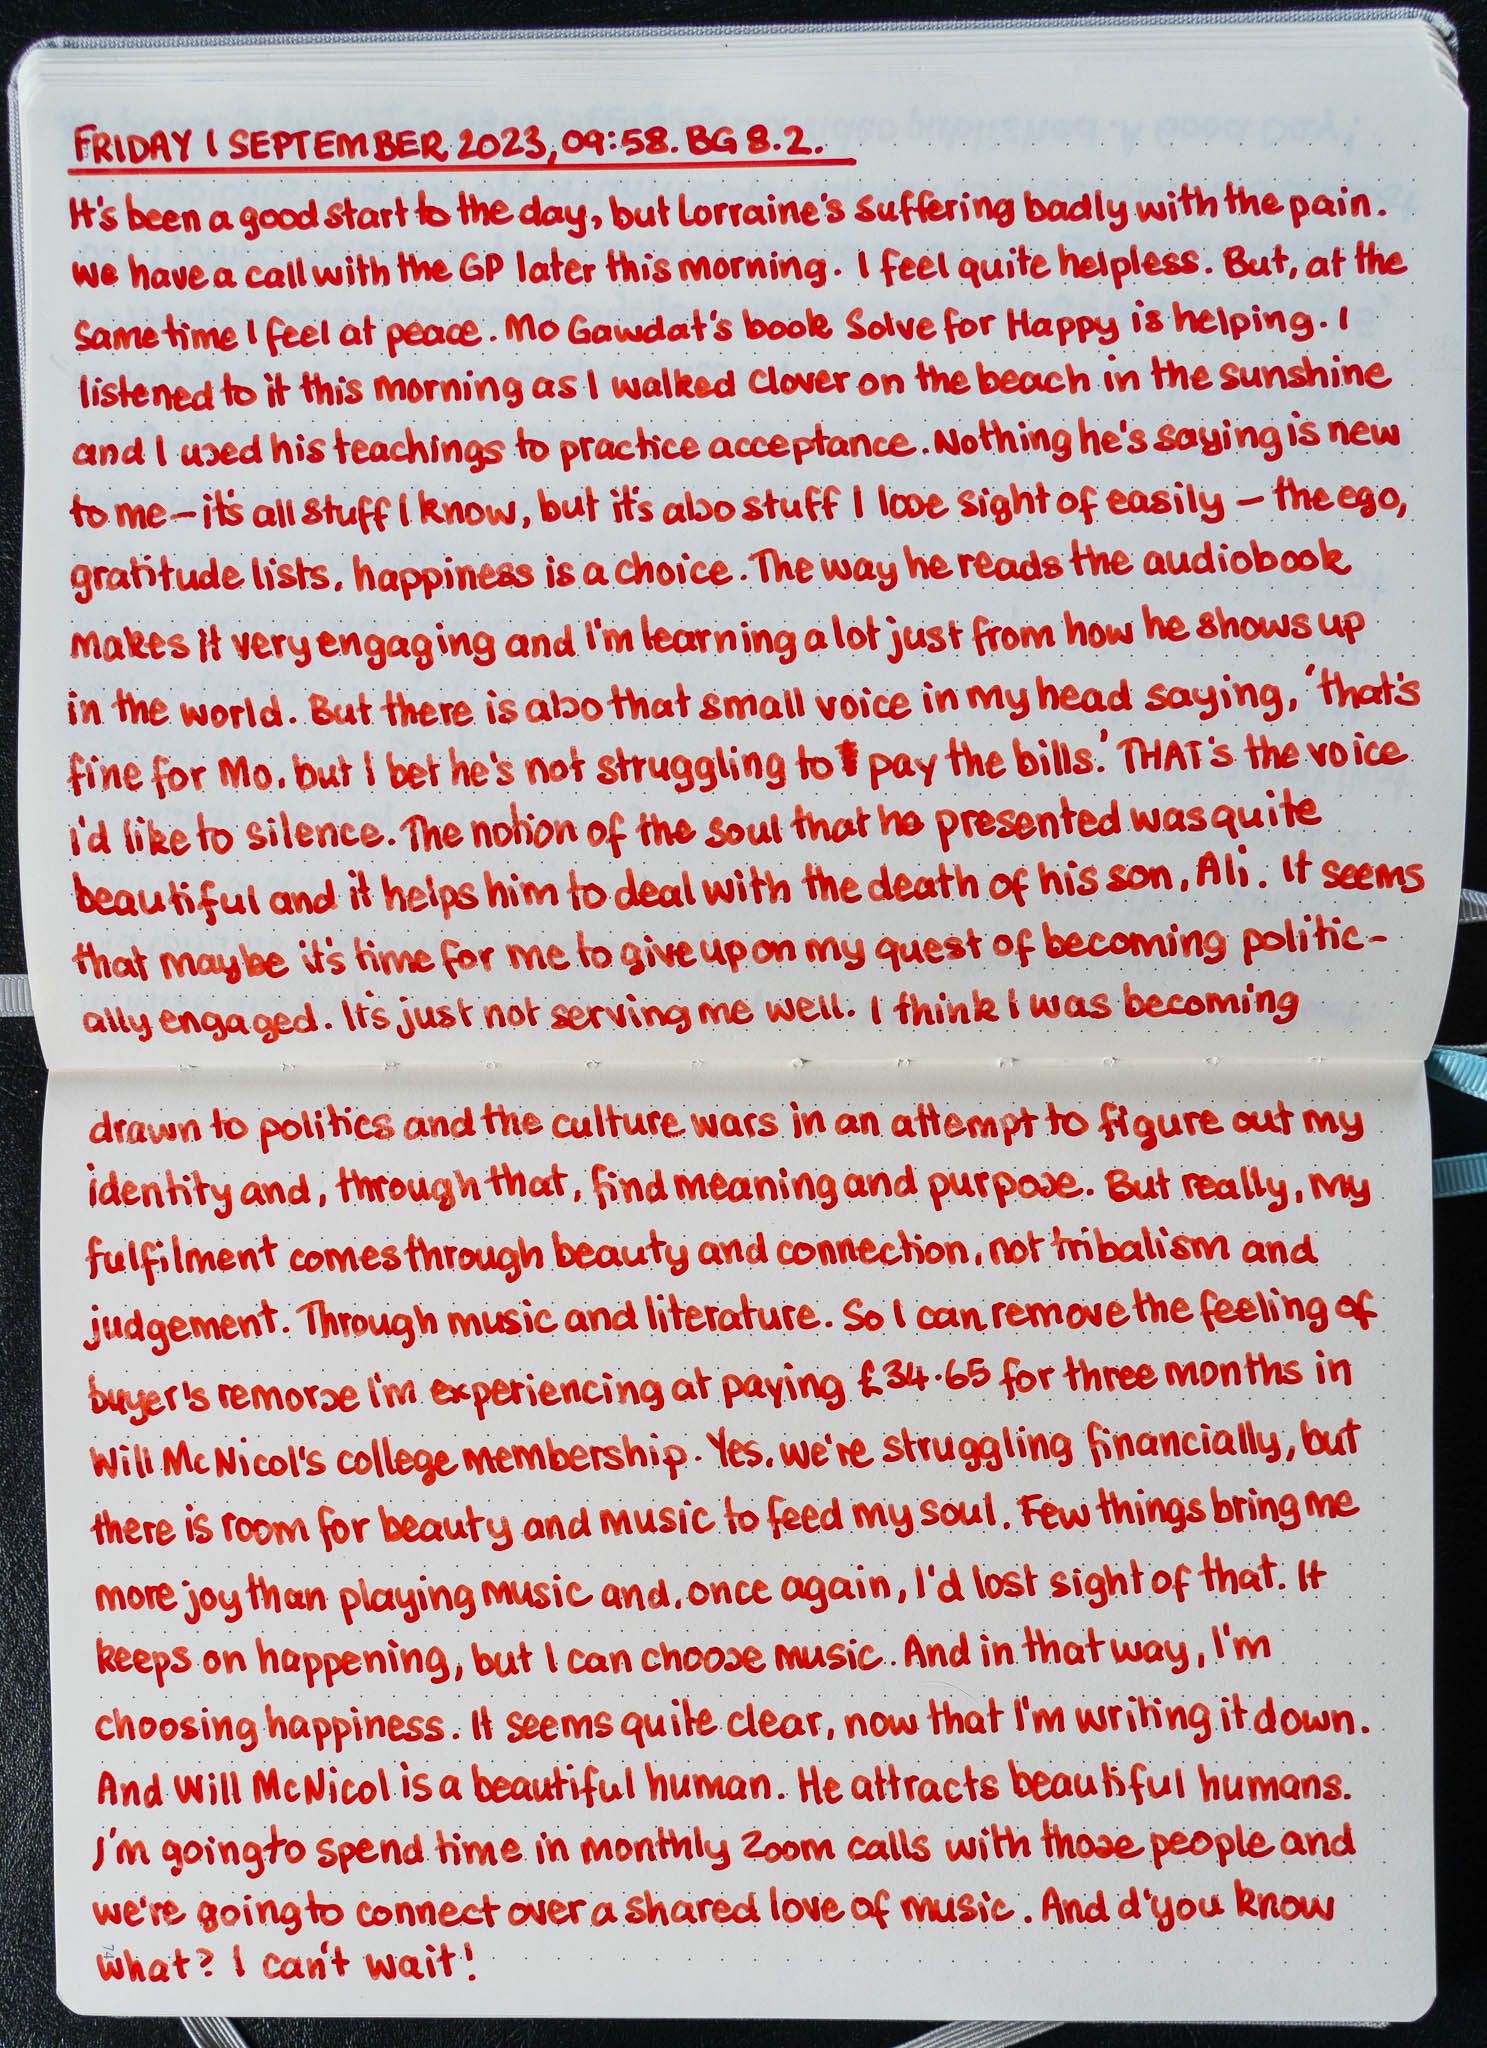 FRIDAY 1 SEPTEMBER 2023, 09:58. BG 8.2.
It's been a good start to the day, but Lorraine's suffering badly with the pain.
We have a call with the GP later this morning. I feel quite helpless. But, at the
same time I feel at peace. Mo Gawdat's book Solve for Happy is helping. I
listened to it this morning as I walked Clover on the beach in the sunshine
and I used his teachings to practice acceptance. Nothing he's saying is new
to me – it's all stuff I know, but it's also stuff I lose sight of easily – the ego,
gratitude lists, happiness is a choice. The way he reads the audiobook
makes it very engaging and I'm learning a lot just from how he shows up
in the world. But there is also that small voice in my head saying, 'that's
fine for Mo, but I bet he's not struggling to pay the bills.' THAT's the voice
I'd like to silence. The notion of the soul that he presented was quite
beautiful and it helps him to deal with the death of his son, Ali. It seems
that maybe it's time for me to give up on my quest of becoming politic-
ally engaged. It's just not serving me well. I think I was becoming
drawn to politics and the culture wars in an attempt to figure out my
identity and, through that, find meaning and purpose. But really, my
fulfilment comes through beauty and connection, not tribalism and
judgement. Through music and literature. So I can remove the feeling of
buyer's remorse I'm experiencing at paying £34.65 for three months in
Will McNicol's college membership. Yes, we're struggling financially, but
there is room for beauty and music to feed my soul. Few things bring me
more joy than playing music and, once again, I'd lost sight of that. It
keeps on happening, but I can choose music. And in that way, I'm
choosing happiness. It seems quite clear, now that I'm writing it down.
And Will McNicol is a beautiful human. He attracts beautiful humans.
I'm going to spend time in monthly Zoom calls with those people and
we're going to connect over a shared love of music. And d'you know
what? I can't wait!
74